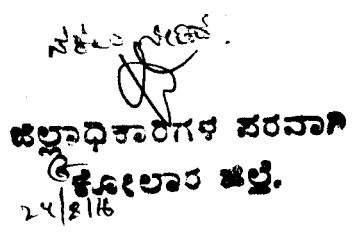 ಜಿಲ್ಲಾಧಿಕಾರಿಗಳ ಪರವಾಗಿ
ಕೋಲಾರ ಜಿಲ್ಲೆ.
24/8/16